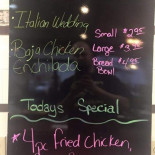 Italian Wedding
Small $2.95
Baja Chicken Enchilada
Large $3.95
Bread Bowl $4.95
Todays Special
* 4pc fried Chicken,